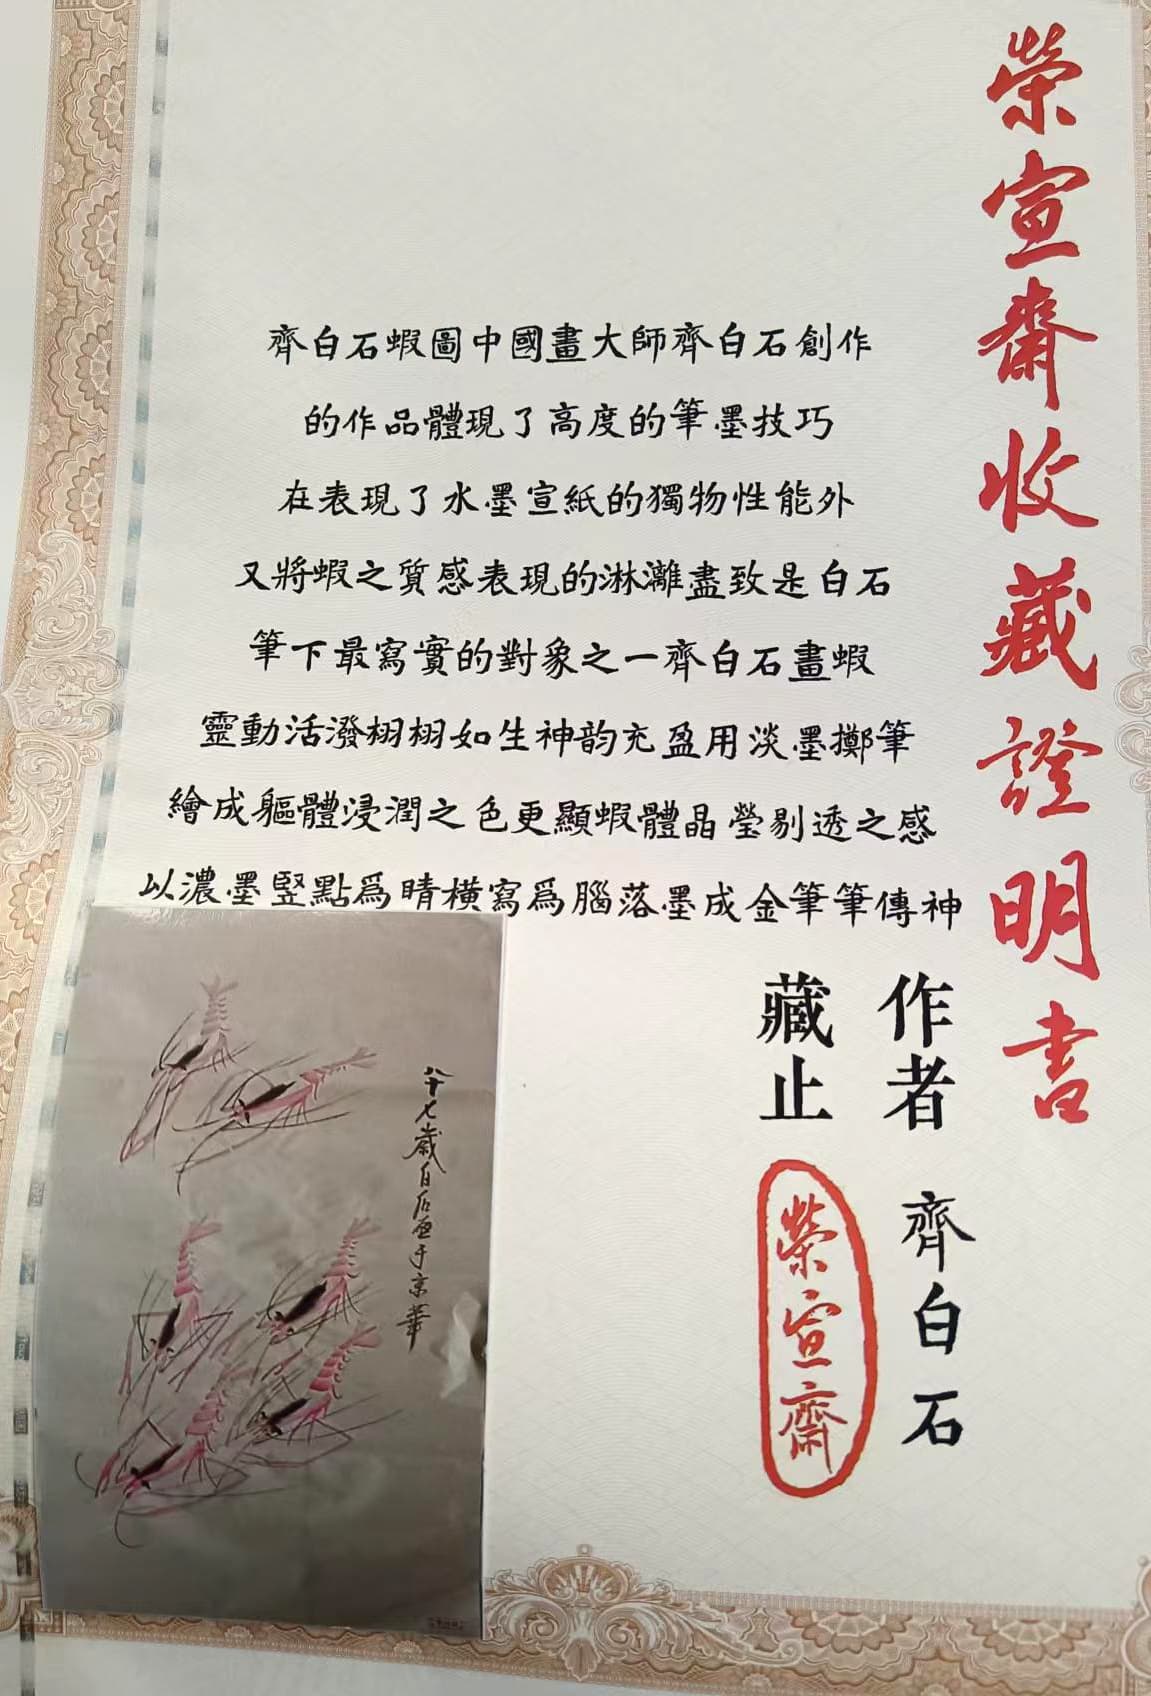 榮宣齋收藏證明書
齊白石蝦圖中國畫大師齊白石創作
的作品體現了高度的筆墨技巧
在表現了水墨宣紙的獨物性能外
又將蝦之質感表現的淋灕盡致是白石
筆下最寫實的對象之一齊白石畫蝦
靈動活潑栩栩如生神韵充盈用淡墨擲筆
繪成軀體浸潤之色更顯蝦體晶瑩剔透之感
以濃墨竪點爲睛橫寫爲腦落墨成金筆筆傳神
作者 齊白石
藏止
榮宣齋
八十七歲白石畫于京華